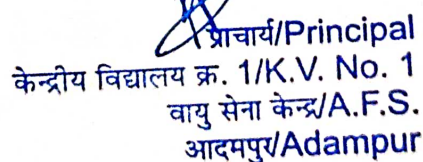 प्राचार्य/Principal
केन्द्रीय विद्यालय क्र. 1/K.V. No. 1
वायु सेना केन्द्र/A.F.S.
आदमपुर/Adampur